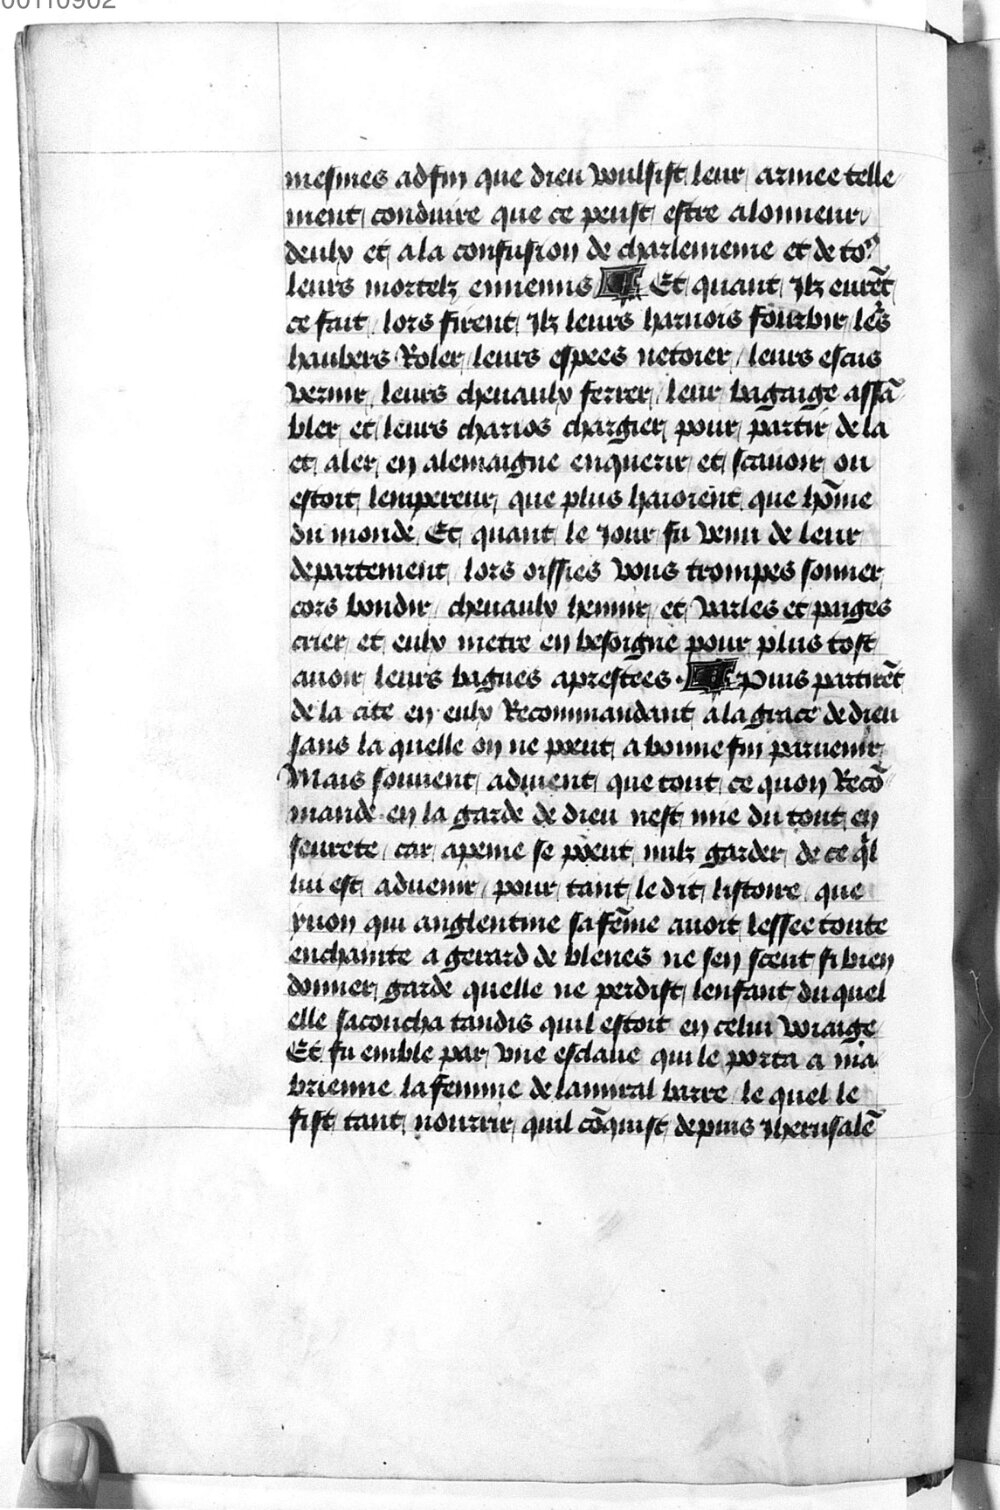 00110902
mesmes adfin que dieu voulsist leur armee telle
ment conduire que ce peust estre a lonneur
deulx et a la confusion de charlemeine et de to9
leurs mortelz ennemis ¶ Et quant Ilz eurēt
ce fait / lors firent Ilz leurs harnois fourbir / les
haubers Roler / leurs espees netoier / leurs escus
vernir / leurs cheuaulx ferrer / leur bagaige assā
bler et leurs charios chargier pour partir de la
et aler en alemaigne enquerir et scauoir ou
estoit lempereur que plus haioient que hōme
du monde. Et quant le Jour fu venu de leur
departement lors oissies vous trompes sonner
cors bondir / cheuaulx hennir et varles et paiges
crier et eulx metre en besoigne pour plus tost
auoir leurs bagues aprestees. ¶ Puis partirēt
de la cite en eulx Recommandant a la grace de dieu
sans la quelle on ne poeut a bonne fin paruenir
Mais souuent aduient que tout ce quon Recō
mande en la garde de dieu nest mie du tout en
seurete / car a peine se poeut nulz garder de ce ql
lui est aduenir / pour tant le dit listoire que
yuon qui anglentine sa fēme auoit lessee toute
enchainte a gerard de blenes ne sen sceut si bien
donner garde quelle ne perdist lenfant du quel
elle sacoucha tandis quil estoit en celui voiaige
Et fu emble par vne esclaue qui le porta a ma
brienne la femme de lamiral barre / le quel le
fist tant nourrir quil cōquist depuis Jherusalē